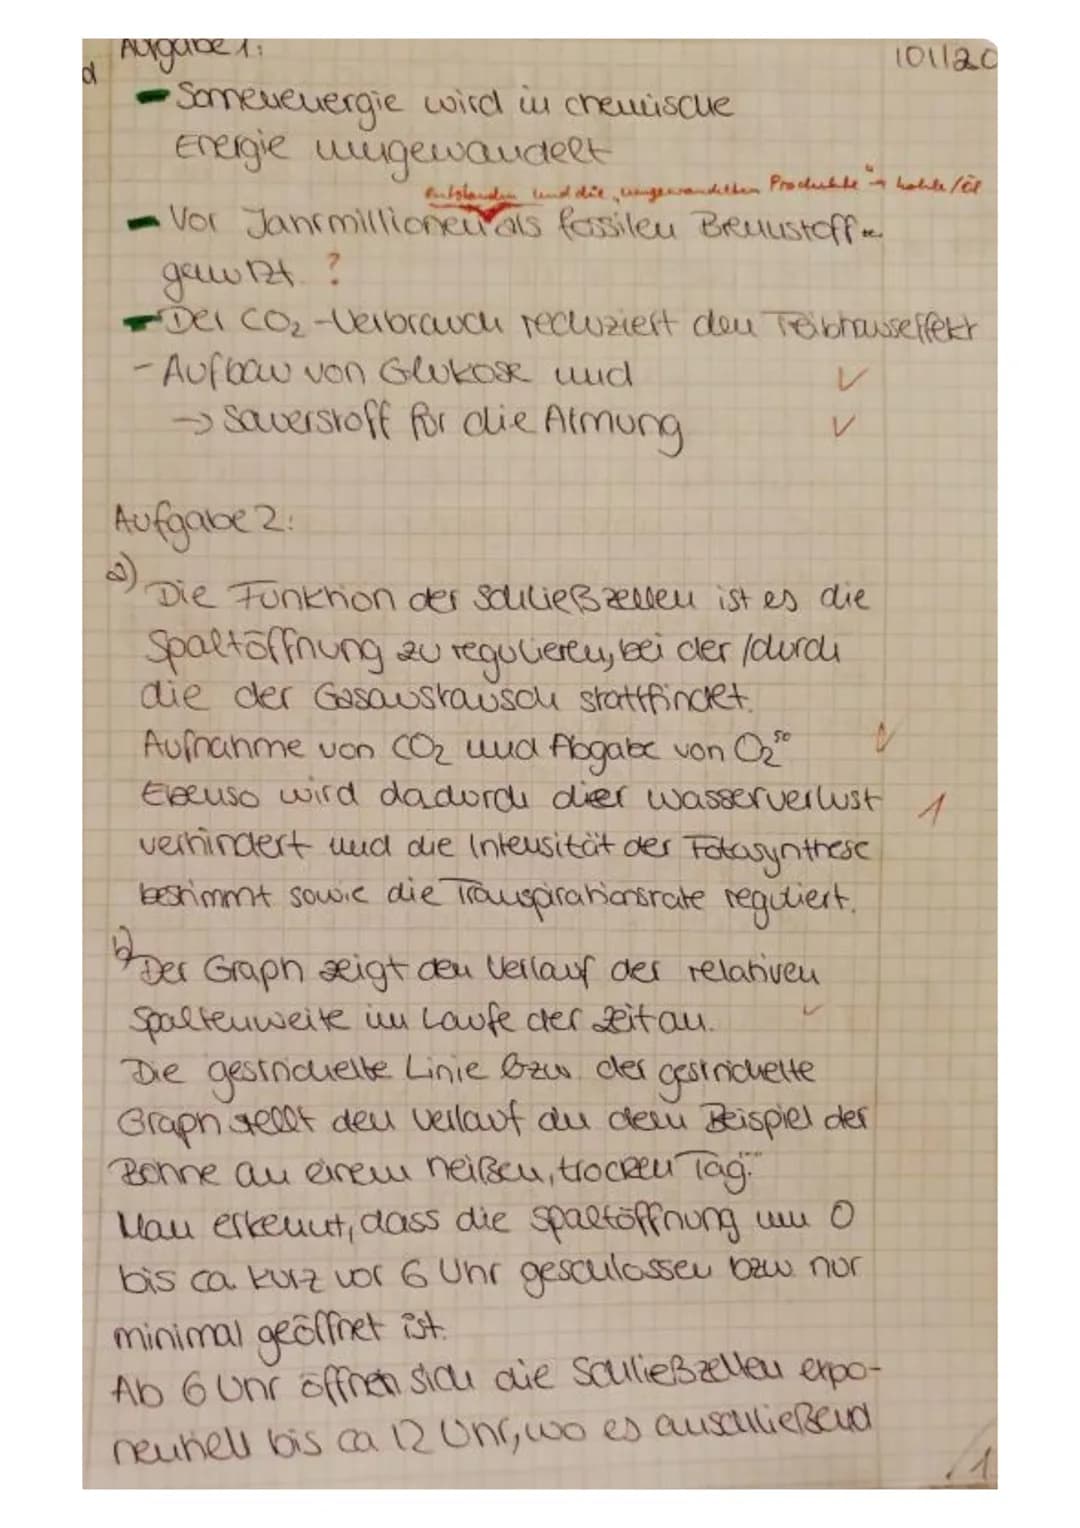 Aufgabe 1:
101120
- Sonnenenergie wird in chemische
Energie umgewandelt
entstanden und die „umgewandelten Produkte" → Kohle/Öl
- Vor Jahrmillionen als fossilen Brennstoff
genutzt. ?
- Der CO₂-Verbrauch reduziert den Treibhauseffekt
- Aufbau von Glukose und ✓
→ Sauerstoff für die Atmung ✓
Aufgabe 2:
a) Die Funktion der Schließzellen ist es die
Spaltöffnung zu regulieren, bei der /durch
die der Gasaustausch stattfindet.
Aufnahme von CO₂ und Abgabe von O₂ so
Ebenso wird dadurch der Wasserverlust 1
verhindert und die Intensität der Fotosynthese
bestimmt sowie die Transpirationsrate reguliert.
b) Der Graph zeigt den Verlauf der relativen
Spaltenweite im Laufe der Zeit an. ✓
Die gestrichelte Linie bzw. der gestrichelte
Graph stellt den Verlauf an dem Beispiel der
Bohne an einem heißen, trocken Tag.
Man erkennt, dass die Spaltöffnung um 0
bis ca. kurz vor 6 Uhr geschlossen bzw. nur
minimal geöffnet ist.
Ab 6 Uhr öffnen sich die Schließzellen expo-
nentiell bis ca 12 Uhr, wo es anschließend
/1